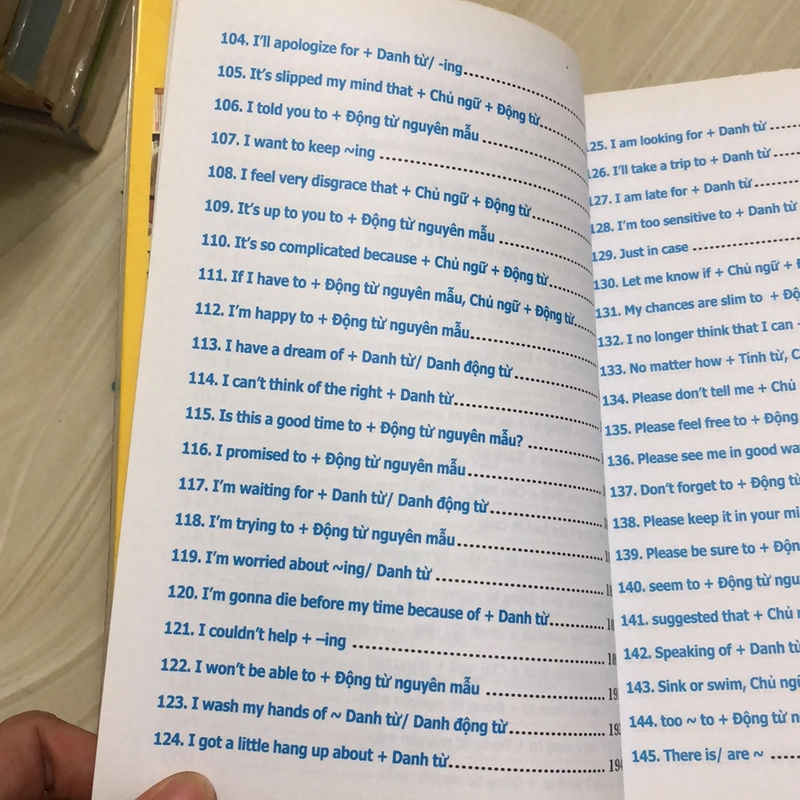 104. I'll apologize for + Danh từ/ -ing
105. It's slipped my mind that + Chủ ngữ + Động từ
106. I told you to + Động từ nguyên mẫu
107. I want to keep ~ing
108. I feel very disgrace that + Chủ ngữ + Động từ
109. It's up to you to + Động từ nguyên mẫu
110. It's so complicated because + Chủ ngữ + Động từ
111. If I have to + Động từ nguyên mẫu, Chủ ngữ + Động từ
112. I'm happy to + Động từ nguyên mẫu
113. I have a dream of + Danh từ/ Danh động từ
114. I can't think of the right + Danh từ
115. Is this a good time to + Động từ nguyên mẫu?
116. I promised to + Động từ nguyên mẫu
117. I'm waiting for + Danh từ/ Danh động từ
118. I'm trying to + Động từ nguyên mẫu
119. I'm worried about ~ing/ Danh từ
120. I'm gonna die before my time because of + Danh từ
121. I couldn't help + –ing
122. I won't be able to + Động từ nguyên mẫu
123. I wash my hands of ~ Danh từ/ Danh động từ
124. I got a little hang up about + Danh từ
125. I am looking for + Danh từ
126. I'll take a trip to + Danh từ
127. I am late for + Danh từ
128. I'm too sensitive to + Danh từ
129. Just in case
130. Let me know if + Chủ ngữ +
131. My chances are slim to +
132. I no longer think that I can
133. No matter how + Tính từ,
134. Please don't tell me + Chủ
135. Please feel free to + Động
136. Please see me in good
137. Don't forget to + Động từ
138. Please keep it in your
139. Please be sure to +
140. seem to + Động từ
141. suggested that + Chủ
142. Speaking of + Danh từ
143. Sink or swim, Chủ
144. too ~ to + Động từ
145. There is/ are ~